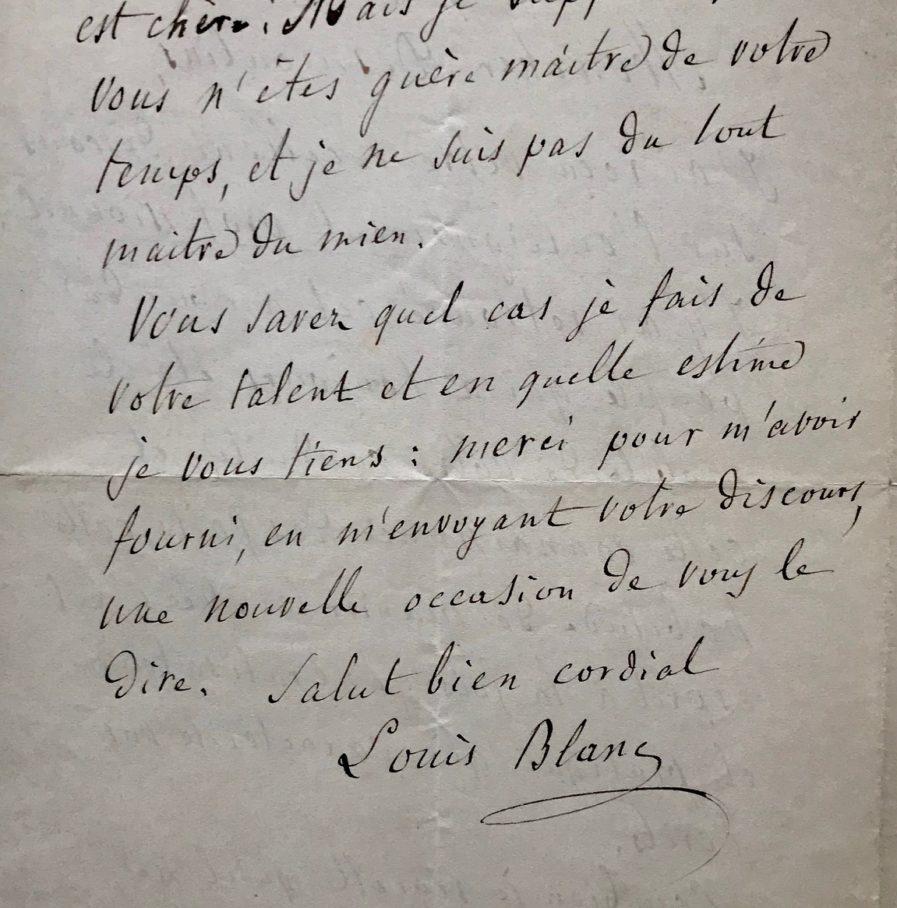 est chère. Mais je
vous n'êtes guère maitre de votre
temps, et je ne suis pas du tout
maitre du mien.
Vous savez quel cas je fais de
votre talent et en quelle estime
je vous tiens : merci pour m'avoir
fourni, en m'envoyant votre discours,
une nouvelle occasion de vous le
dire. Salut bien cordial
Louis Blanc